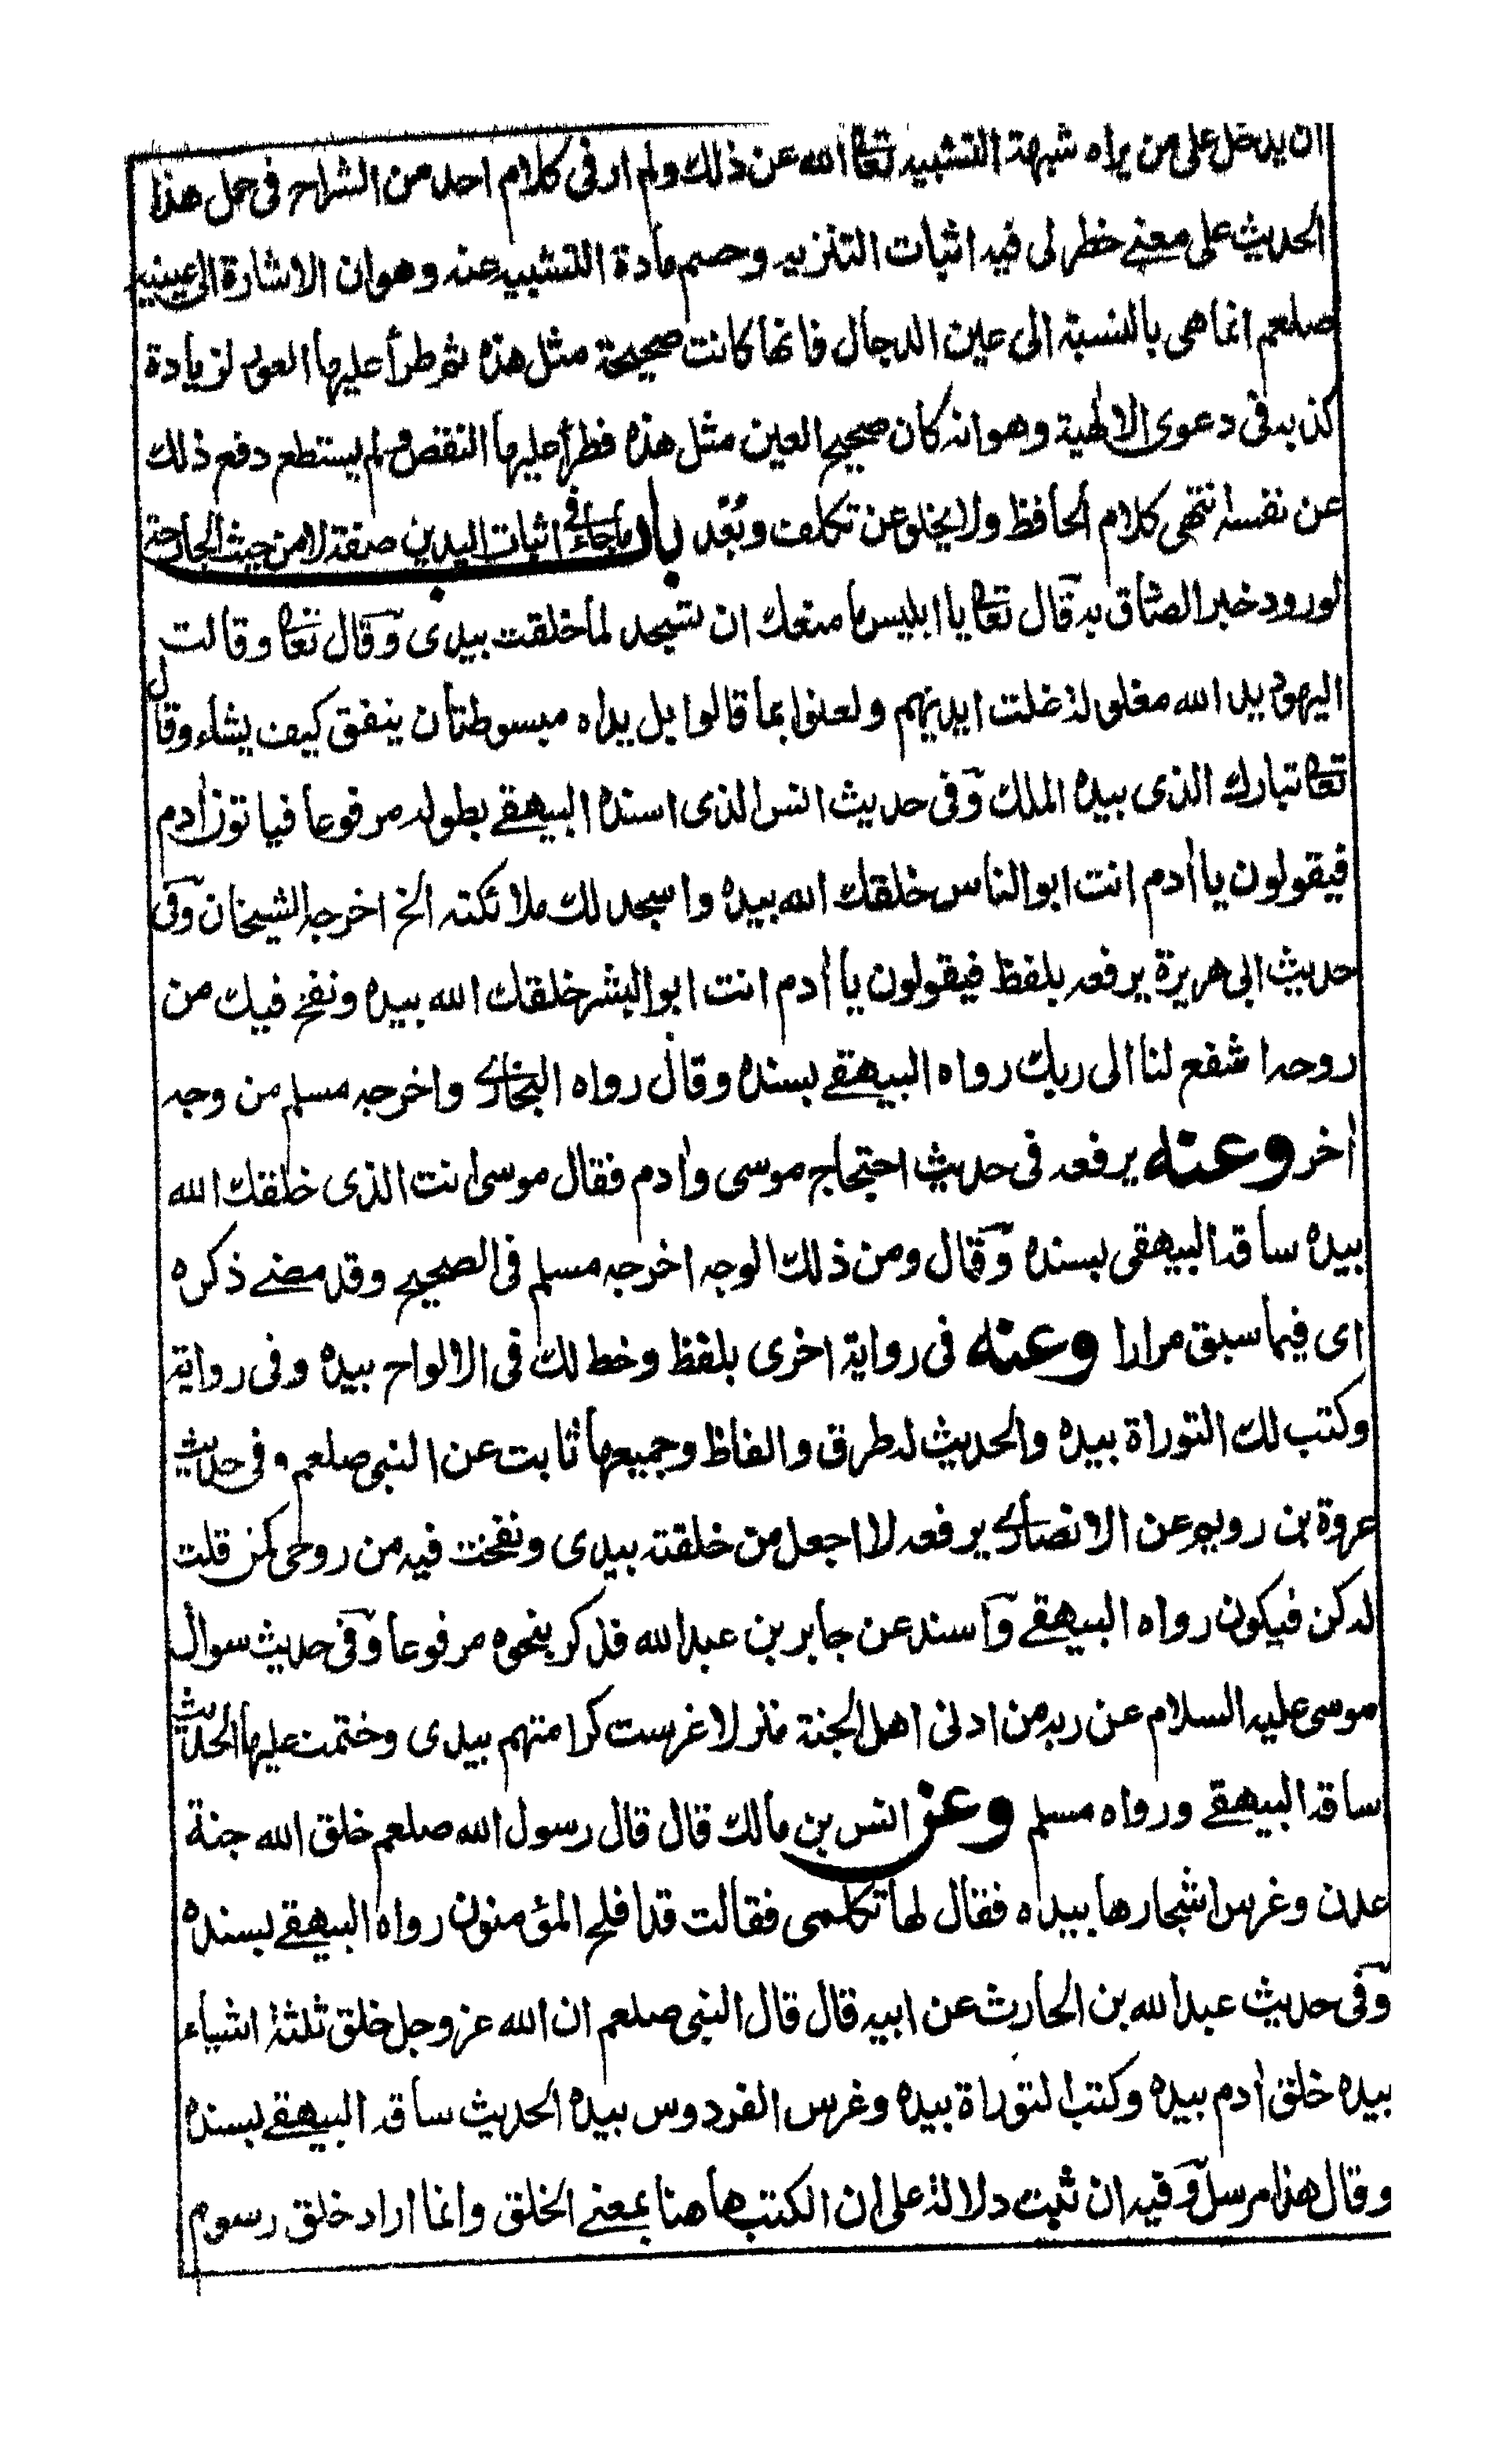 ان يدخل على من يراه شبهة التشبيه تعالى الله عن ذلك ولم ار فى كلام احد من الشراح فى حمل هذا
الحديث على معنى خطر لى فيه اثبات التنزيه وحسم مادة التشبيه عنه وهو ان الاشارة الى عينيه
صلعم انما هى بالنسبة الى عين الدجال فانها كانت صحيحة مثل هذه ثم طرأ عليها العور لزيادة
كذبه فى دعوى الالهية وهو انه كان صحيح العين مثل هذه فطرأ عليها النقص ولم يستطع دفع ذلك
عن نفسه انتهى كلام الحافظ ولا يخلو عن تكلف وبُعد باب ما جاء فى اثبات اليدين صفة لا من حيث الجارحة
لورود خبر الصادق به قال تعالى يا ابليس ما منعك ان تسجد لما خلقت بيدى وقال تعالى وقالت
اليهود يد الله مغلولة غلت ايديهم ولعنوا بما قالوا بل يداه مبسوطتان ينفق كيف يشاء وقال
تعالى تبارك الذى بيده الملك وفى حديث انس الذى اسنده البيهقى بطوله مرفوعا فياتون أدم
فيقولون يا أدم انت ابو الناس خلقك الله بيده واسجد لك ملائكته الخ اخرجه الشيخان وفى
حديث ابى هريرة يرفعه بلفظ فيقولون يا أدم انت ابو البشر خلقك الله بيده ونفخ فيك من
روحه اشفع لنا الى ربك رواه البيهقى بسنده وقال رواه البخارى واخرجه مسلم من وجه
أخر وعنه يرفعه فى حديث احتجاج موسى وأدم فقال موسى انت الذى خلقك الله
بيده ساقه البيهقى بسنده وقال ومن ذلك الوجه اخرجه مسلم فى الصحيح وقد مضى ذكره
اى فيما سبق مرارا وعنه فى رواية اخرى بلفظ وخط لك فى الالواح بيده وفى رواية
وكتب لك التوراة بيده والحديث له طرق والفاظ وجميعها ثابت عن النبى صلعم وفى حديث
عروة بن رويم عن الانصارى يرفعه لا اجعل من خلقته بيدى ونفخت فيه من روحى كمن قلت
له كن فيكون رواه البيهقى واسند عن جابر بن عبد الله فذكر بنحوه مرفوعا وفى حديث سوال
موسى عليه السلام عن ربه من ادنى اهل الجنة منزلا غرست كرامتهم بيدى وختمت عليها الحديث
ساقه البيهقى ورواه مسلم وعن انس بن مالك قال قال رسول الله صلعم خلق الله جنة
عدن وغرس اشجارها بيده فقال لها تكلمى فقالت قد افلح المؤمنون رواه البيهقى بسنده
وفى حديث عبد الله بن الحارث عن ابيه قال قال النبى صلعم ان الله عز وجل خلق ثلثة اشياء
بيده خلق أدم بيده وكتب التوراة بيده وغرس الفردوس بيده الحديث ساقه البيهقى بسنده
وقال هذا مرسل وفيه ان ثبت دلالة على ان الكتب هاهنا بمعنى الخلق وانما اراد خلق رسوم